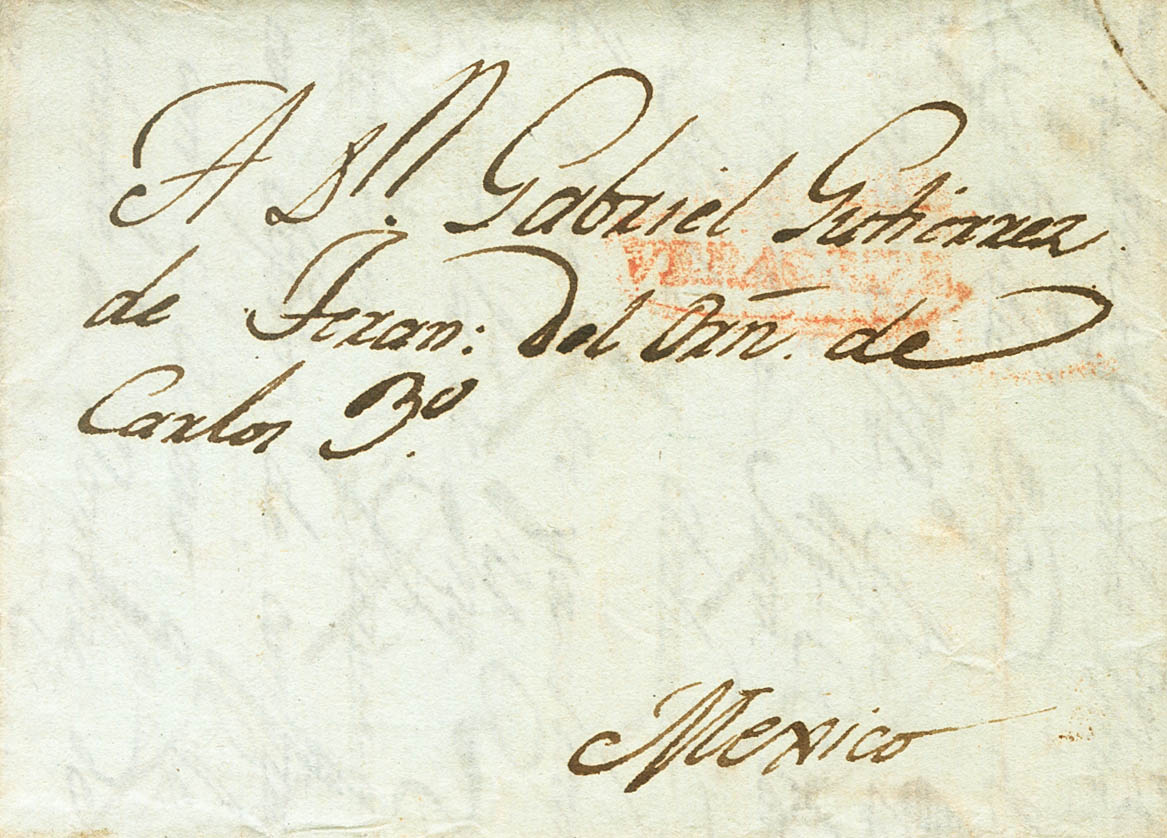 A Dn. Gabriel Gutierrez
VERACRUZ
de Teran: del Orn. de
Carlos 3º.
Mexico